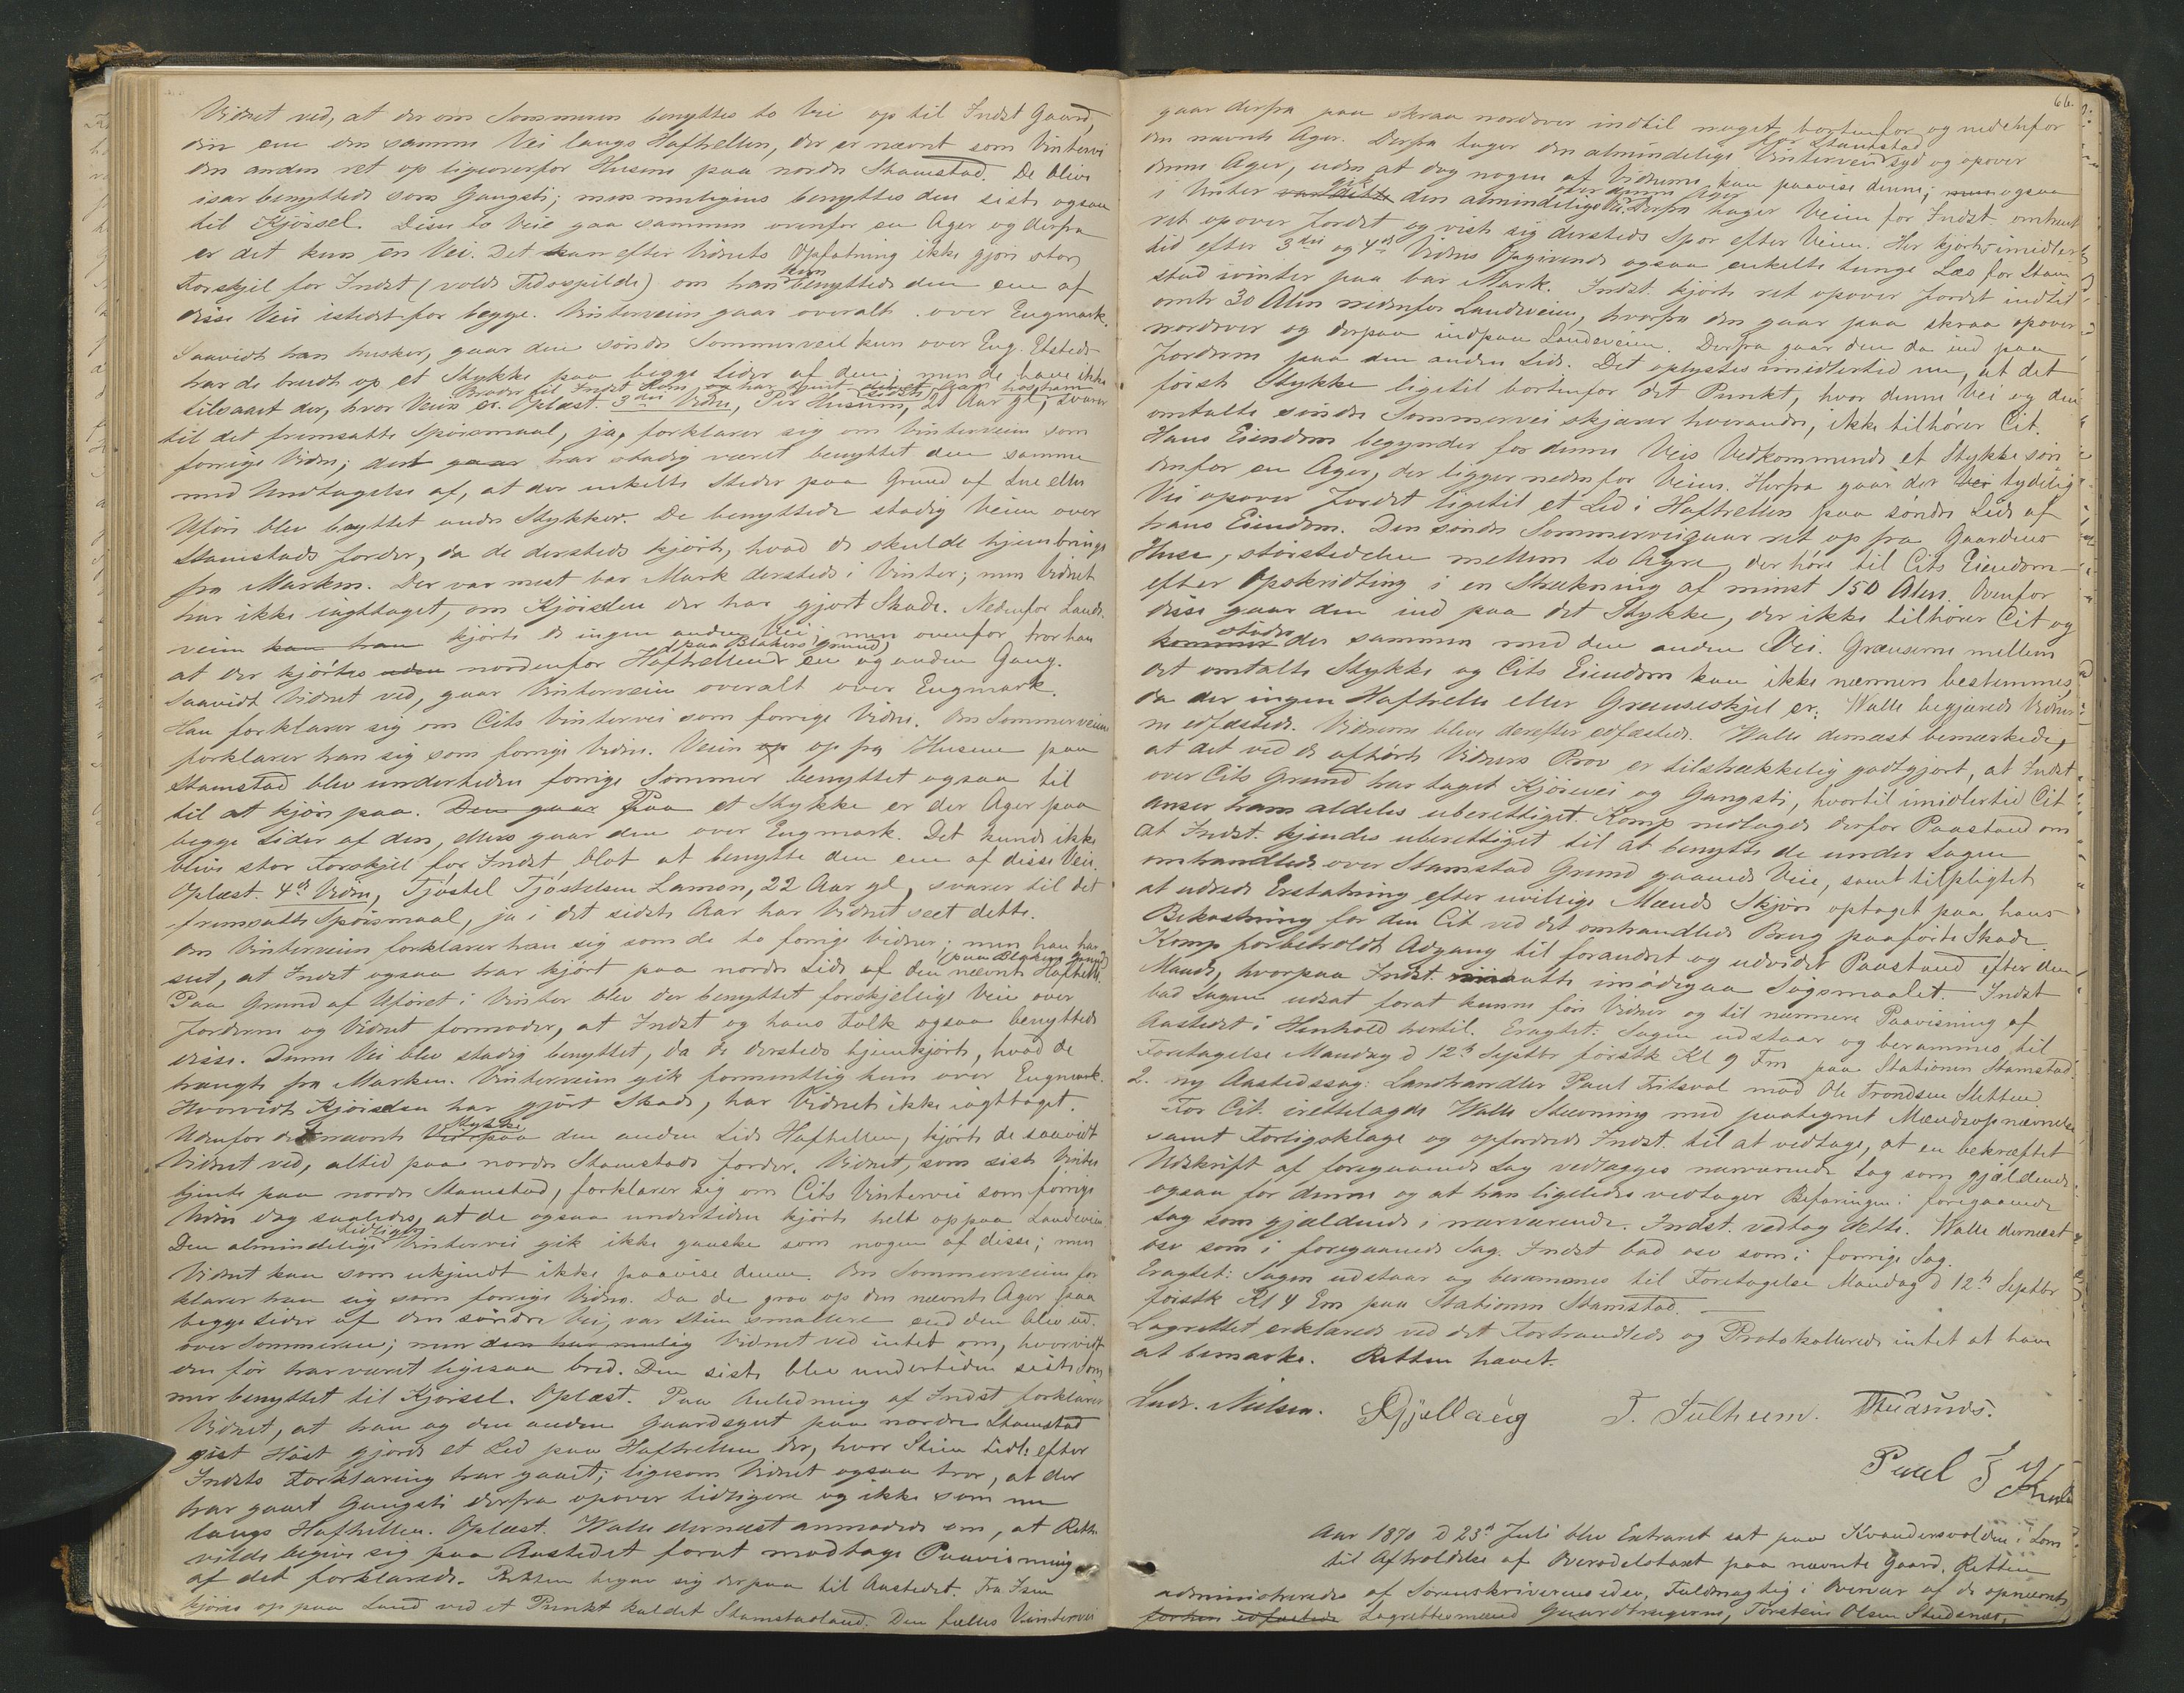 Vidnet ved, at der om Sommeren benyttes to Veie op til Indst Gaard,
den ene den samme Vei langs Haftrellen, der er nævnt som Vintervei
den anden ret op ligeoverfor Husene paa nordre Stamstad. De blive
især benyttede som Gangsti; men muligens benyttes den siste ogsaa
til Kjörsel. Disse to Veie gaa sammen ovenfor en Ager og derfra
er det kun en Vei. Det kan efter Vidnets Opfatning ikke gjöre stor
Forskjel for Indst (volde Tidsspilde) om han kun benyttede den ene af
disse Veie istedetfor begge. Vinterveien gaar overalt over Engmark.
Saavidt han husker, gaar den söndre Sommervei kun over Eng. Etsteds
har de brudt op et Stykke paa begge Sider af den; men de have ikke
tilsaaet der, hvor Veien er. Oplæst. 3die Vidne, Per Husum, 21 Aar gl, svarer
Broder til Indst som og har tjent sidste Aar hos ham
til det fremsatte Spörsmaal, ja, forklarer sig om Vinterveien som
forrige Vidne; den gaar har stadig været benyttet den samme
med Undtagelse af, at der enkelte Steder paa Grund af Sne eller
Uföre blev benyttet andre Stykker. De benyttede stadig Veien over
Stamstads Jorder, da de dersteds kjörte, hvad de skulde hjembringe
fra Marken. Der var mest bar Mark dersteds i Vinter; men Vidnet
har ikke iagttaget, om Kjörselen der har gjort Skade. Nedenfor Lande-
veien kan han kjörte de ingen anden Vei; men ovenfor tror han
at der kjörtes uden nordenfor Haftrellen (paa Blakers Grund) en og anden Gang.
Saavidt Vidnet ved, gaar Vinterveien overalt over Engmark.
Han forklarer sig om Cits Vintervei som forrige Vidne. Om Sommerveien
forklarer han sig som forrige Vidne. Veien op op fra Husene paa
Stamstad blev undertiden forrige Sommer benyttet ogsaa til
til at kjöre paa. Den gaar Paa et Stykke er der Ager paa
begge Sider af den, ellers gaar den over Engmark. Det kunde ikke
blive stor Forskjel for Indst, blot at benytte den ene af disse Veie.
Oplæst. 4de Vidne, Tjöstel Tjöstelsen Lamon, 22 Aar gl, svarer til det
fremsatte Spörsmaal, ja i det sidste Aar har Vidnet seet dette.
Om Vinterveien forklarer han sig som de to forrige Vidner; men han har
seet, at Indst ogsaa har kjört paa nordre Side af den nævnte Haftrelle (paa Blakers Grund)
Paa Grund af Uföret i Vinter blev der benyttet forskjellige Veie over
Jorderne og Vidnet formoder, at Indst og hans Folk ogsaa benyttede
disse. Denne Vei blev stadig benyttet, da de dersteds hjemkjörte, hvad de
trængte fra Marken. Vinterveien gik formentlig kun over Engmark.
Hvorvidt Kjörselen har gjört Skade, har Vidnet ikke iagttaget.
Udenfor det nævnte Stykke Vei paa den anden Side Haftrellen, kjörte de saavidt
Vidnet ved, altid paa nordre Stamstads Jorder. Vidnet, som siste Vinter
tjente paa nordre Stamstad, forklarer sig om Cits Vintervei som forrige
Vidne dog saaledes, at de ogsaa undertiden kjörte helt op paa Landeveien
Den almindelige tidligere Vintervei gik ikke ganske som nogen af disse; men
Vidnet kan som ukjendt ikke paavise denne. Om Sommerveien for-
klarer han sig som forrige Vidne. Da de grov op den nævnte Ager paa
begge Sider af den söndre Vei, var Stien smallere end den blev ud-
over Sommeren; men den har mulig Vidnet ved intet om, hvorvidt
den för har været ligesaa bred. Den siste blev undertiden siste Som-
mer benyttet til Kjörsel. Oplæst. Paa Anledning af Indst forklarer
Vidnet, at han og den anden Gaardsgut paa nordre Stamstad
sist Höst gjorde et Led paa Haftrellen der, hvor Stien tidl. efter
Indsts Forklaring har gaaet; ligesom Vidnet ogsaa tror, at der
har gaaet Gangsti derfra opover tidligere og ikke som nu
langs Haftrellen. Oplæst. Walle dernæst anmodede om, at Retten
vilde begive sig paa Aastedet forat modtage Paavisning
af det forklarede. Retten begav sig derpaa til Aastedet. Fra Isen
kjöres op paa Land ved et Punkt kaldet Stamstadland. Den fælles Vintervei
66.
gaar derfra paa skraa nordover indtil noget bortenfor og nedenfor
den nævnte Ager. Derfra tager den almindelige Vintervei for Stamstad syd og opover
denne Ager, uden at dog nogen af Vidnerne kan paavise denne; men ogsaa
i Vinter var dette gik den almindelige Vei over denne Ager. Derfra tager Veien for Indst. omtrent
ret opover Jordet og viste sig dersteds Spor efter Veien. Her kjörtes imidler-
tid efter 3die og 4de Vidnes Opgivende ogsaa enkelte tunge Læs for Stam-
stad ivinter paa bar Mark. Indst. kjörte ret opover Jordet indtil
omtr 30 Alen nedenfor Landeveien, hvorfra den gaar paa skraa opover
nordover og derpaa indpaa Landeveien. Derfra gaar den da ind paa
Jorderne paa den anden Side. Det oplystes imidlertid nu, at det
förste Stykke ligetil bortenfor det Punkt, hvor denne Vei og den
omtalte söndre Sommervei skjærer hverandre, ikke tilhörer Cit.
Hans Eiendom begynder for denne Veis Vedkommende et Stykke sön-
denfor en Ager, der ligger nedenfor Veien. Herfra gaar der Ver tydelig
Vei opover Jordet ligetil et Led i Haftrellen paa söndre Side af
hans Eiendom. Den söndre Sommervei gaar ret op fra Gaardens
Huse, störstedelen mellem to Agre, der höre til Cits Eiendom
efter Opskridting i en Strækning af minst 150 Alen. Ovenfor
disse gaar den ind paa det Stykke, der ikke tilhörer Cit og
kommer stöder der sammen med den anden Vei. Grænserne mellem
det omtalte Stykke og Cits Eiendom kan ikke nærmere bestemmes,
da der ingen Haftrelle eller Grændseskjel er. Walle begjærede Vidner-
ne edfæstede. Vidnerne bleve derefter edfæstede. Walle dernæst bemærkede,
at det ved de afhörte Vidners Prov er tilstrækkelig godtgjort, at Indst
over Cits Grund har taget Kjörevei og Gangsti, hvortil imidlertid Cit
anser ham aldeles uberettiget. Komp nedlagde derfor Paastand om
at Indst. kjendes uberettiget til at benytte de under Sagen
omhandlede over Stamstad Grund gaaende Veie, samt tilpligtet
at udrede Erstatning efter uvillige Mænds Skjön optaget paa hans
Bekostning for den Cit ved det omhandlede Brug paaförte Skade.
Komp forbeholdt Adgang til forandret og udvidet Paastand efter den
Maade, hvorpaa Indst. maatte imödegaa Sogsmaalet. Indst
bad Sagen udsat forat kunne före Vidner og til nærmere Paavisning af
Aastedet i Henhold hertil. Eragtet: Sagen udstaar og berammes til
Foretagelse Mandag d 12te Septbr förstk Kl 9 Fm paa Stationen Stamstad.
2. ny Aastedssag: Landhandler Paul Fitsval mod Ole Trondsen Sletten.
For Cit. irettelagde Walle Stevning med paategnet Mændsopnævnelse,
samt Forligsklage og opfordrede Indst. til at vedtage, at en bekræftet
Udskrift af foregaaende Sag vedlægges nærværende Sag som gjældende
ogsaa for denne og at han ligeledes vedtager Befaringen i foregaaende
Sag som gjældende i nærværende. Indst. vedtog dette. Walle dernæst
osv som i foregaaende Sag. Indst bad osv som i forrige Sag.
Eragtet: Sagen udstaar og berammes til Foretagelse Mandag d 12te Septbr
förstk Kl 4 Em paa Stationen Stamstad.
Lagrettet erklærede ved det Forhandlede og Protokollerede intet at have
at bemærke. Retten hævet.
Ludv. Nielsen.
T. Sulheim.
Paul T
Aar 1870 d 23de Juli blev Extraret sat paa Kvandersvolden i Lom
til Afholdelse af Overodelstaxt paa nævnte Gaard. Retten
administreredes af Sorenskriverens edsv. Fuldmægtig i Overvær af de opnævnte
forhen edfæstede Lagrettesmænd Gaardbrugerne, Torstein Olsen Studsnæs,